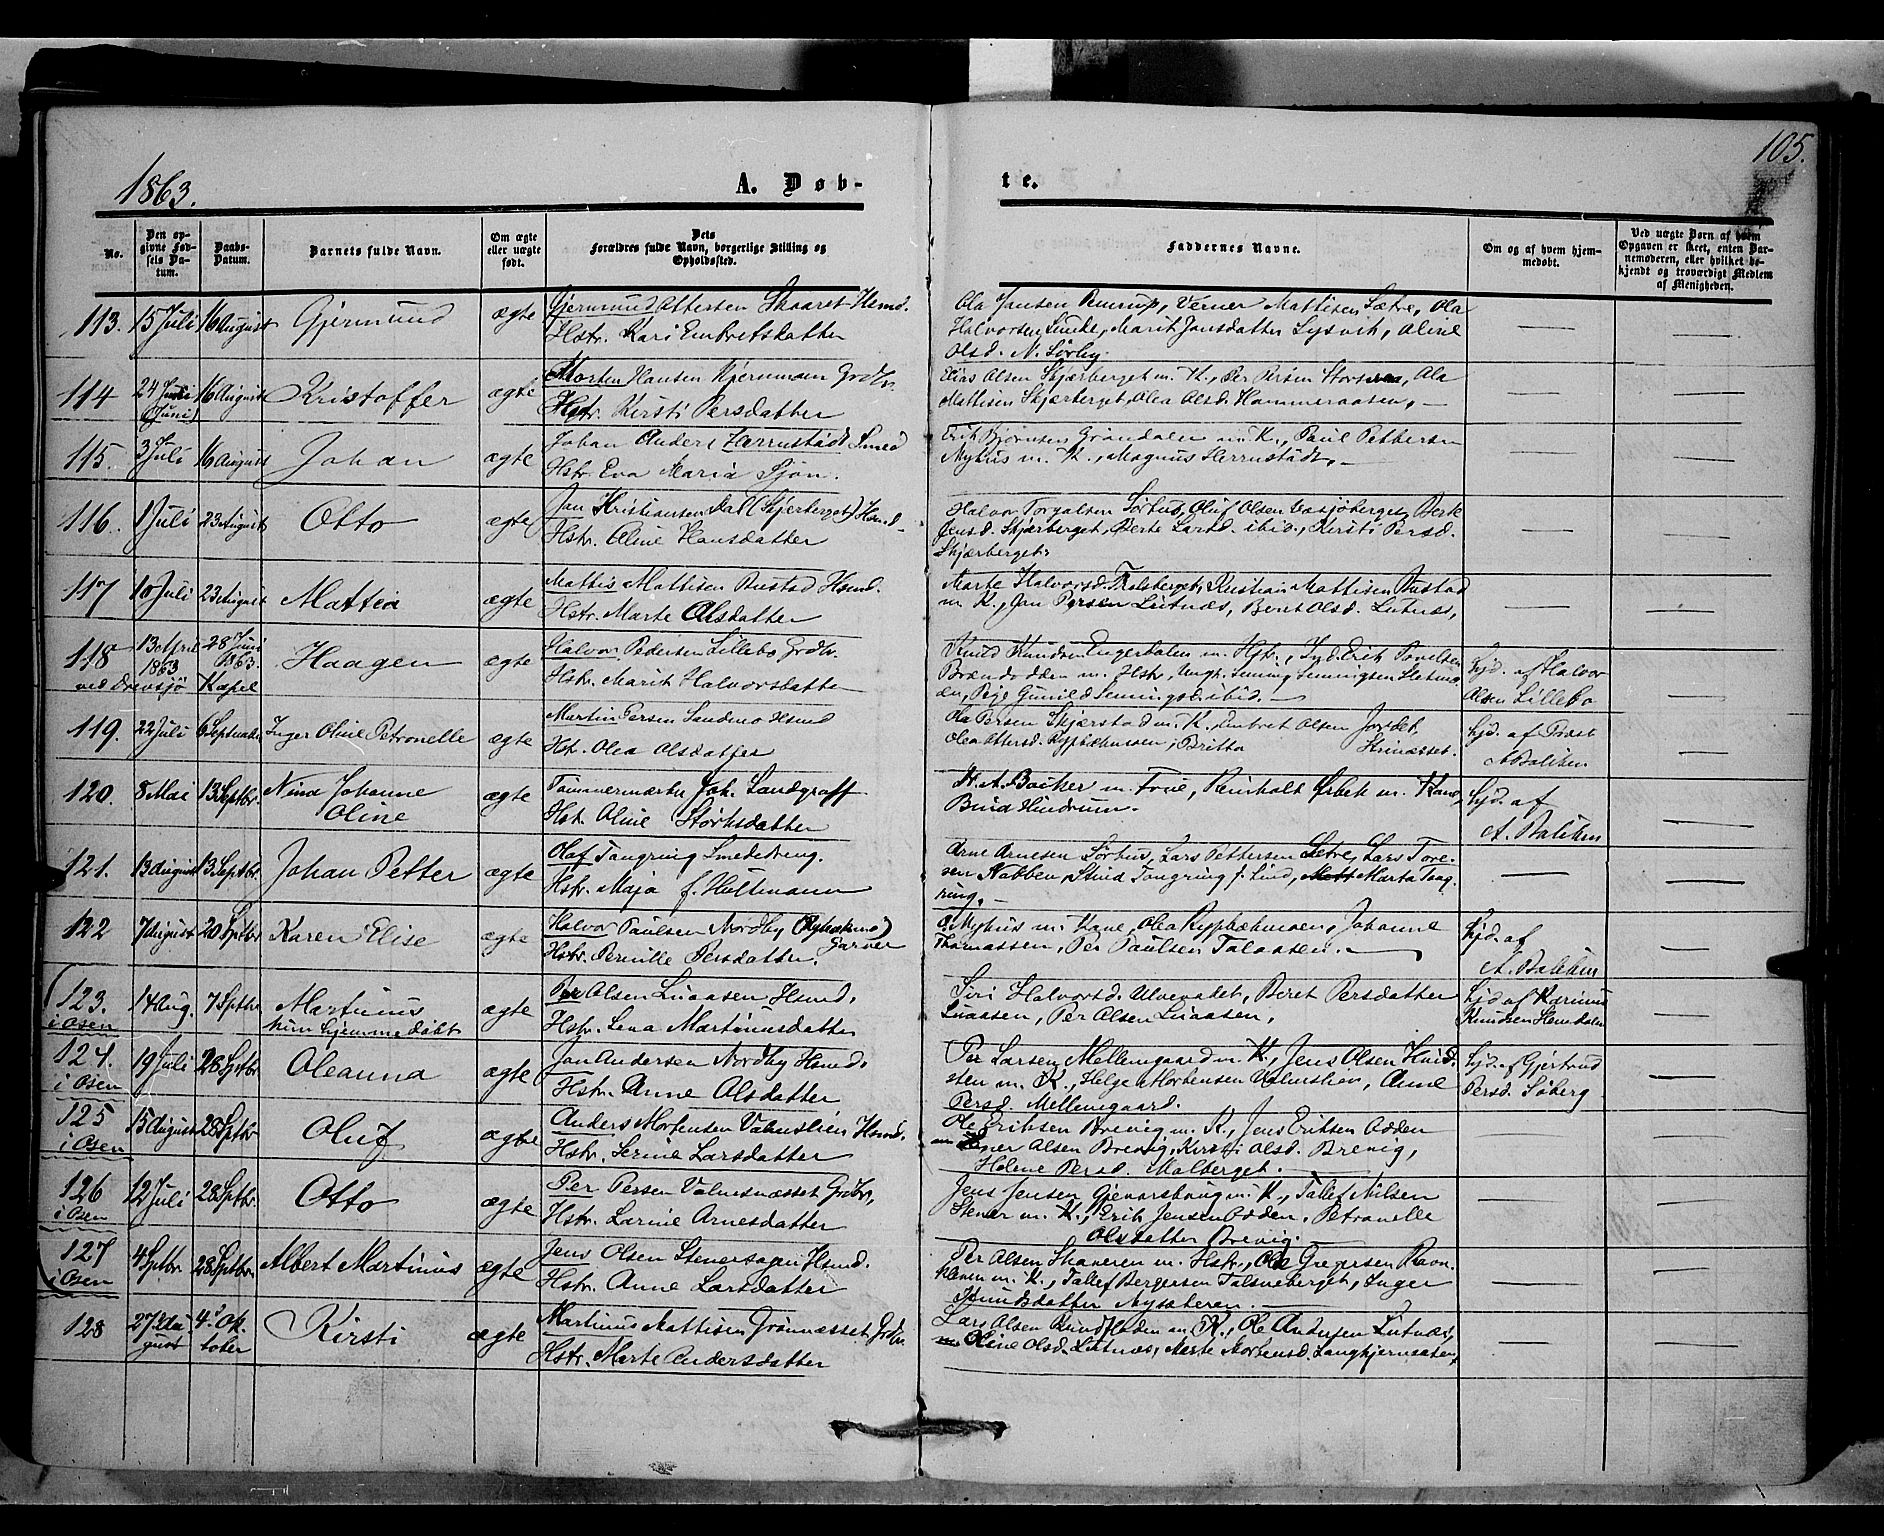 105.
1863.
A. Døb-
te.
No.
Den op-
givne Fød-
sels Da-
tum.
Daabs-
Datum.
Barnets fulde Navn.
Om ægte
eller uægte
født.
Dets
Forældres fulde Navn, borgerlige Stilling og
Opholdssted.
Faddernes Navne.
Om og af hvem hjem-
medøbt.
Ved uægte Børn af hvem
Opgaven er skeet, enten Bar-
nemoderen, eller hvilket be-
kjendt og troværdigt Medlem
af Menigheden.
113. 15 Juli 16 August Gjermund ægte Gjermund Ottersen Skaaret Hsmd.
Hstr. Kari Embretsdatter
Ola Jansen Remrup, Verner Mattisen Sætre, Ola
Halvorsen Linde, Marit Jansdatter Lysvik, Oline
Olsd. N. Sörby.
114 24 Juli (Juni) 16 August Kristoffer ægte Morten Hansen Kjernmoen Grdbr.
Hstr. Kirsti Persdatter
Elias Olsen Skjærberget m. K., Per Persen, Ola
Mattisen Skjærberget, Olea Olsd. Hammeraasen, -
115. 3 Juli 16 August Johan ægte Johan Anders Herrnstådt Smed
Hstr. Eva Maria Sjön.
Erik Bjørnsen Grøndalen m. K., Paul Pettersen
Nyhus m. K., Magnus Herrnstådt, -
116. 1 Juli 23 August Otto ægte Jan Kristiansen Dal (Skjerberget) Hsmd -
Hstr. Oline Hansdatter
Halvor Torgalsen Sörhus, Oluf Olsen Vasjöberget, Berte
Jensd. Skjærberget, Berte Larsd. ibid., Kirsti Persd.
Skjærberget.
117 10 Juli 23 August Mattea ægte Mattis Mattisen Rustad Hsmd.
Hstr. Marte Olsdatter
Marte Halvorsd. Galsberget, Kristian Mattisen Rustad
m K., Jan Persen Lutnæs, Beret Olsd. Lutnæs,
118 13 April 1863 28 Juni 1863. Haagen ægte Halvor Pedersen Lillebo Grdbr.
ved Drevsjö Kapel
Hstr. Marit Halvorsdatter
Knud Knudsen Engerdalen m. Hstr.,
Brændodden m. Hstr, Ungk. Jenning Jenningsen
Pige Gunild Jenningsd. ibid. -
hjd. af Halvor
Olsen Lillebo
119. 22 Juli 6 Septembr. Inger Oline Petronelle ægte Martin Persen Sandmo Hsmd
Hstr. Olea Olsdatter
Ola Persen Skjærstad m. K., Embret Olsen Jordet,
Olea Ottersd. Ryphæhussen, Britta
hjd. af Prost
A Balchen
120. 8 Mai 13 Septbr. Nina Johanne
Oline ægte Tømmermærker Joh. Landgraff
Hstr. Oline Störksdatter
H. A. Backer m. Frue, Reinholt Ørbek m. Kone,
hjd. af
A. Balchen
121. 13 August 13 Septbr. Johan Petter ægte Olaf Tangring Smededreng.
Hstr. Maja f. Hultmann
Arne Arnesen Sörhus, Lars Pettersen Sætre, Lars Tore-
sen Nabben, Stina Tangring f. Lind, Marta Tang-
ring. -
122 7 August 20 Septbr Karen Elise ægte Halvor Paulsen Nordby
Garver
Hstr. Pernille Persdatter.
O. Myhus m. Kone, Olea Ryphæhmoen, Johanne
Thomassen, Per Paulsen Talaasen. -
hjd. af
A. Balchen
123. 14 Aug. 7 Septbr. Martinus
i Osen kun hjemmedöbt ægte Per Olsen Luaasen Hsmd,
Hstr. Lena Martinusdatter
Siri Halvorsd. Ulvevadet, Beret Persdatter
Luaasen, Per Olsen Luaasen,
hjd af Karinus
Knudsen Hemdalen
124. 19 Juli 28 Septbr. Oleanna ægte Jan Andersen Nordby Hsmd.
i Osen
Hstr. Anne Olsdatter
Per Larsen Mellemgaard m. K., Jens Olsen
m. K., Helge Mortensen Valmstien, Anne
Persd. Mellemgaard.
hjd. af Gjertrud
Persd. Söberg
125 15 August 28 Septbr Oluf ægte Anders Mortensen Valmstien Hsmd.
i Osen
Hstr. Serine Larsdatter
Ole Eriksen Brevig m. K., Jens Eriksen Odden
Olsen Brevig, Kirsti Olsd. Brevig,
Helene Persd. Malberget.
126 12 Juli 28 Septbr. Otto ægte Per Persen Valmesnæsset Grdbr,
i Osen
Hstr. Larine Arnesdatter
Jens Jensen Gjevarshaug m. K., Tallef Nilsen
Stener m. K., Erik Jensen Odden, Petronelle
Olsdatter Brevig.
127 4 Septbr. 28 Septbr. Albert Martinus ægte Jens Olsen Stenersagen Hsmd.
i Osen
Hstr. Anne Larsdatter
Per Olsen Skaveren m. Hstr., Ole Gregersen Ravn-
kleven m. K., Tallef Bergersen Talsneberget, Inger
Knudsdatter Nysæteren. -
128 27 Au-
gust 4. Ok-
tober Kirsti ægte Martinus Mattisen Grönnæsset Grdbr.
Hstr. Marte Andersdatter
Lars Olsen Rundfloden m K., Ole Andersen Lutnæs,
Oline Olsd. Lutnæs, Marte Mortensd. Langkjernaasen